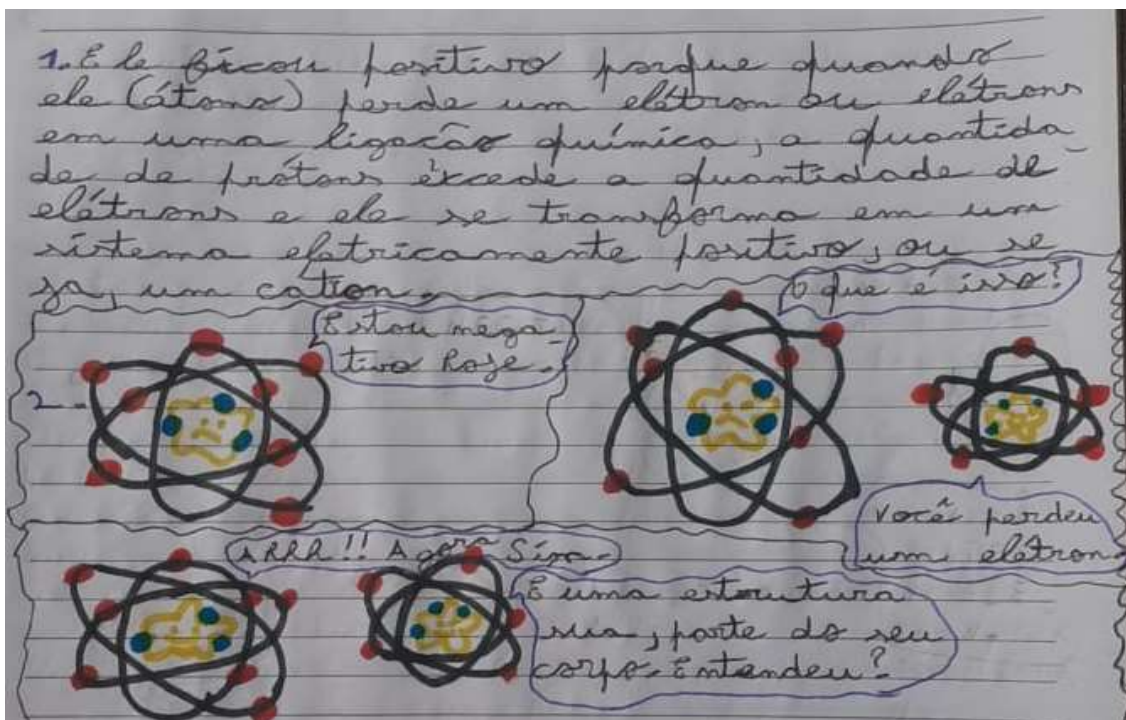 1. Ele ficou positivo porque quando
ele (átomo) perde um elétron ou elétrons
em uma ligação química, a quantida_
de de prótons excede a quantidade de
elétrons e ele se transforma em um
sistema eletricamente positivo, ou se
ja, um cation.
2-
Estou nega_
tivo hoje.
O que é isso?
Você perdeu
um elétron.
ARRR!! Agora Sim.
É uma estrutura
sua, parte do seu
corpo. Entendeu?